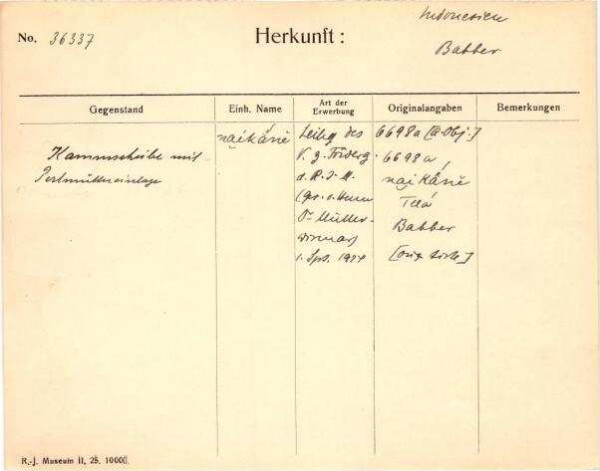 Indonesien
No. 36337 Herkunft: Babber
Gegenstand Einh. Name Art der Erwerbung Originalangaben Bemerkungen
Kammscheibe mit
Perlmutteinlage
naikānē
Leihg. des
V. z. Förderg.
d. R. J. M.
(ges. v. Herrn
Dr Müller-
Wismar)
1. Spt. 1924
6698a [a. Obj.]
6698a,
naikānē
Telá
Babber
R.-J. Museum II, 25. 10000.